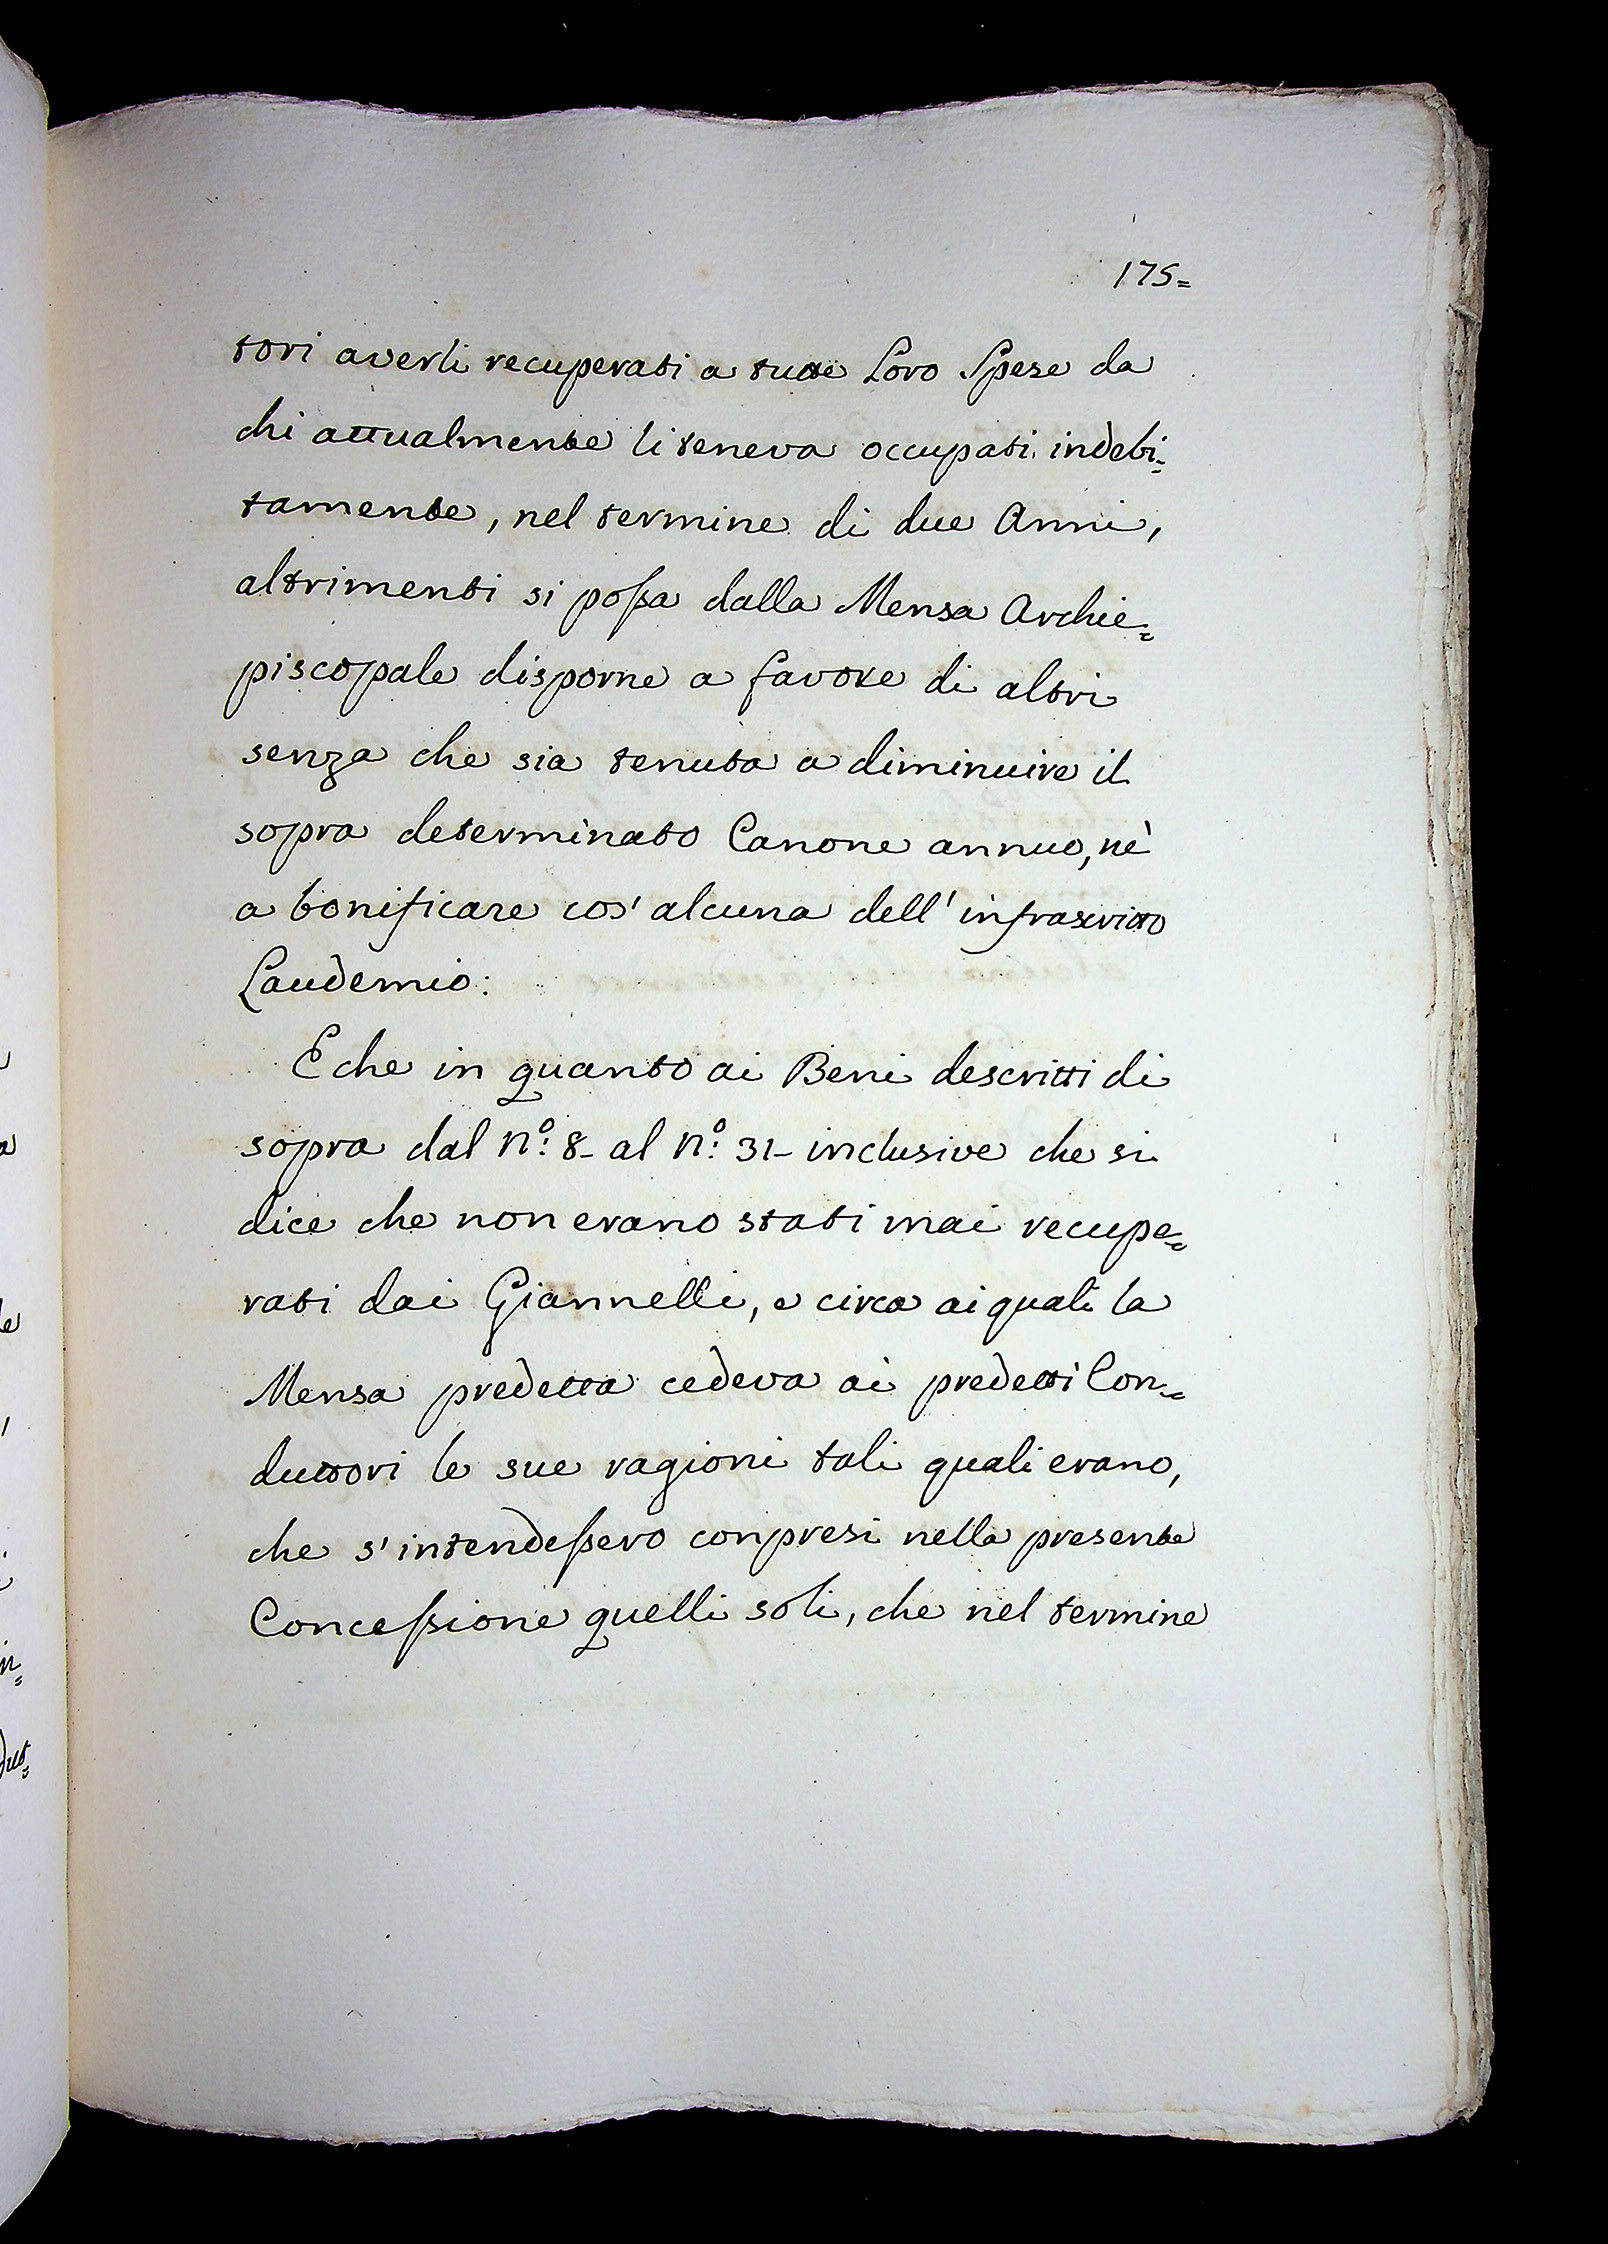 175=
tori averli recuperati a tutte Loro Spese da
chi attualmente li teneva occupati indebi=
tamente, nel termine di due Anni,
altrimenti si possa dalla Mensa Archie=
piscopale disporne a favore di altri
senza che sia tenuta a diminuire il
sopra determinato Canone annuo, nè
a bonificare cos' alcuna dell' infrascritto
Laudemio:
E che in quanto ai Beni descritti di
sopra dal N.º 8- al N.º 31- inclusive che si
dice che non erano stati mai recupe=
rati dai Giannelli, e circa ai quali la
Mensa predetta cedeva ai predetti Con=
duttori le sue ragioni tali quali erano,
che s' intendessero conpresi nella presente
Concessione quelli soli, che nel termine